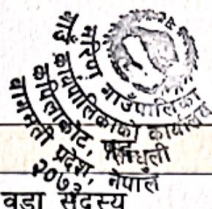 मरिण गाउँपालिका
गाउँ कार्यपालिकाको कार्यालय
कपिलाकोट, सिन्धुली
बागमती प्रदेश, नेपाल
२०७३
वडा सदस्य